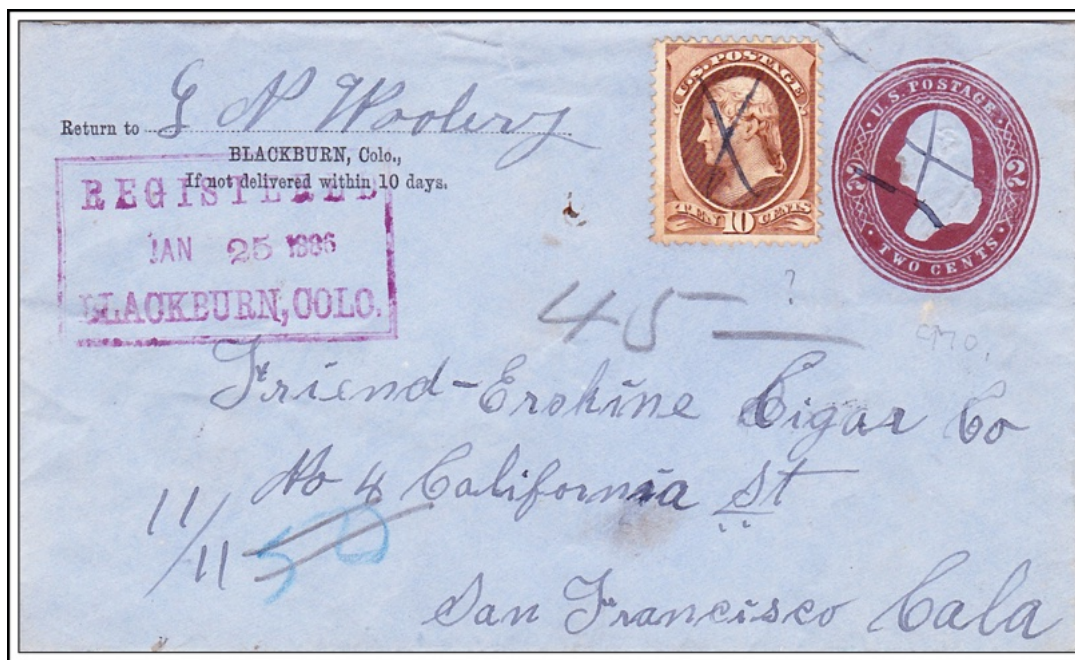 Return to G N Woolery
BLACKBURN, Colo.,
If not delivered within 10 days.
REGISTERED
JAN 25 1886
BLACKBURN, COLO.
U.S. POSTAGE
TEN 10 CENTS
U.S. POSTAGE
2 2
TWO CENTS
45 ?
Friend-Erskine Cigar Co
No 4 California St
11/
11
San Francisco Cala